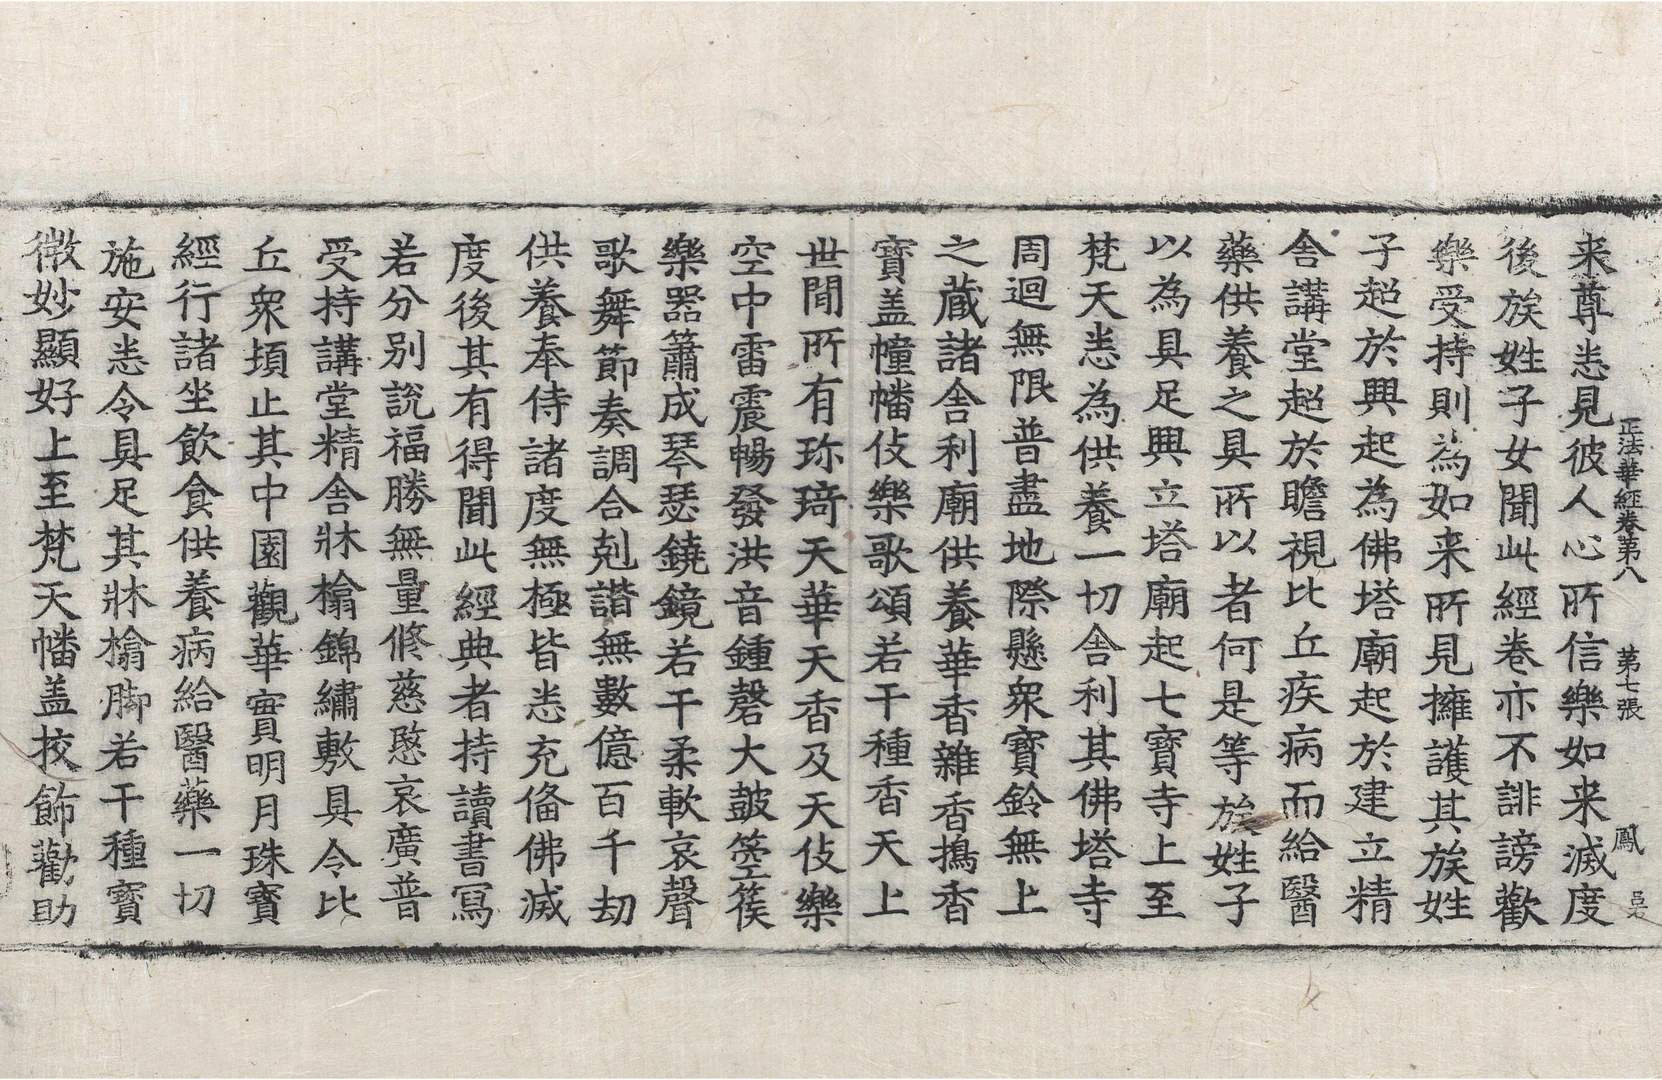 正法華經卷第八 第七張 鳳
来尊悉見彼人心所信樂如来滅度
後族姓子女聞此經卷亦不誹謗歡
樂受持則為如来所見擁護其族姓
子超於興起為佛塔廟起於建立精
舎講堂超於瞻視比丘疾病而給醫
藥供養之具所以者何是等族姓子
以為具足興立塔廟起七寶寺上至
梵天悉為供養一切舎利其佛塔寺
周迴無限普盡地際懸衆寶鈴無上
之蔵諸舎利廟供養華香雜香搗香
寶盖幢幡伎樂歌頌若干種香天上
世間所有珎琦天華天香及天伎樂
空中雷震暢發洪音鍾磬大皷箜篌
樂器簫成琴瑟鐃鏡若干柔軟哀聲
歌舞節奏調合剋諧無數億百千劫
供養奉侍諸度無極皆悉充俻佛滅
度後其有得聞此經典者持讀書寫
若分別說福勝無量俢慈愍哀廣普
受持講堂精舎牀榻錦繡敷具令比
丘衆頃止其中園觀華實明月珠寶
經行諸坐飲食供養病給醫藥一切
施安悉令具足其牀榻脚若干種寶
微妙顯好上至梵天幡盖挍飾勸助